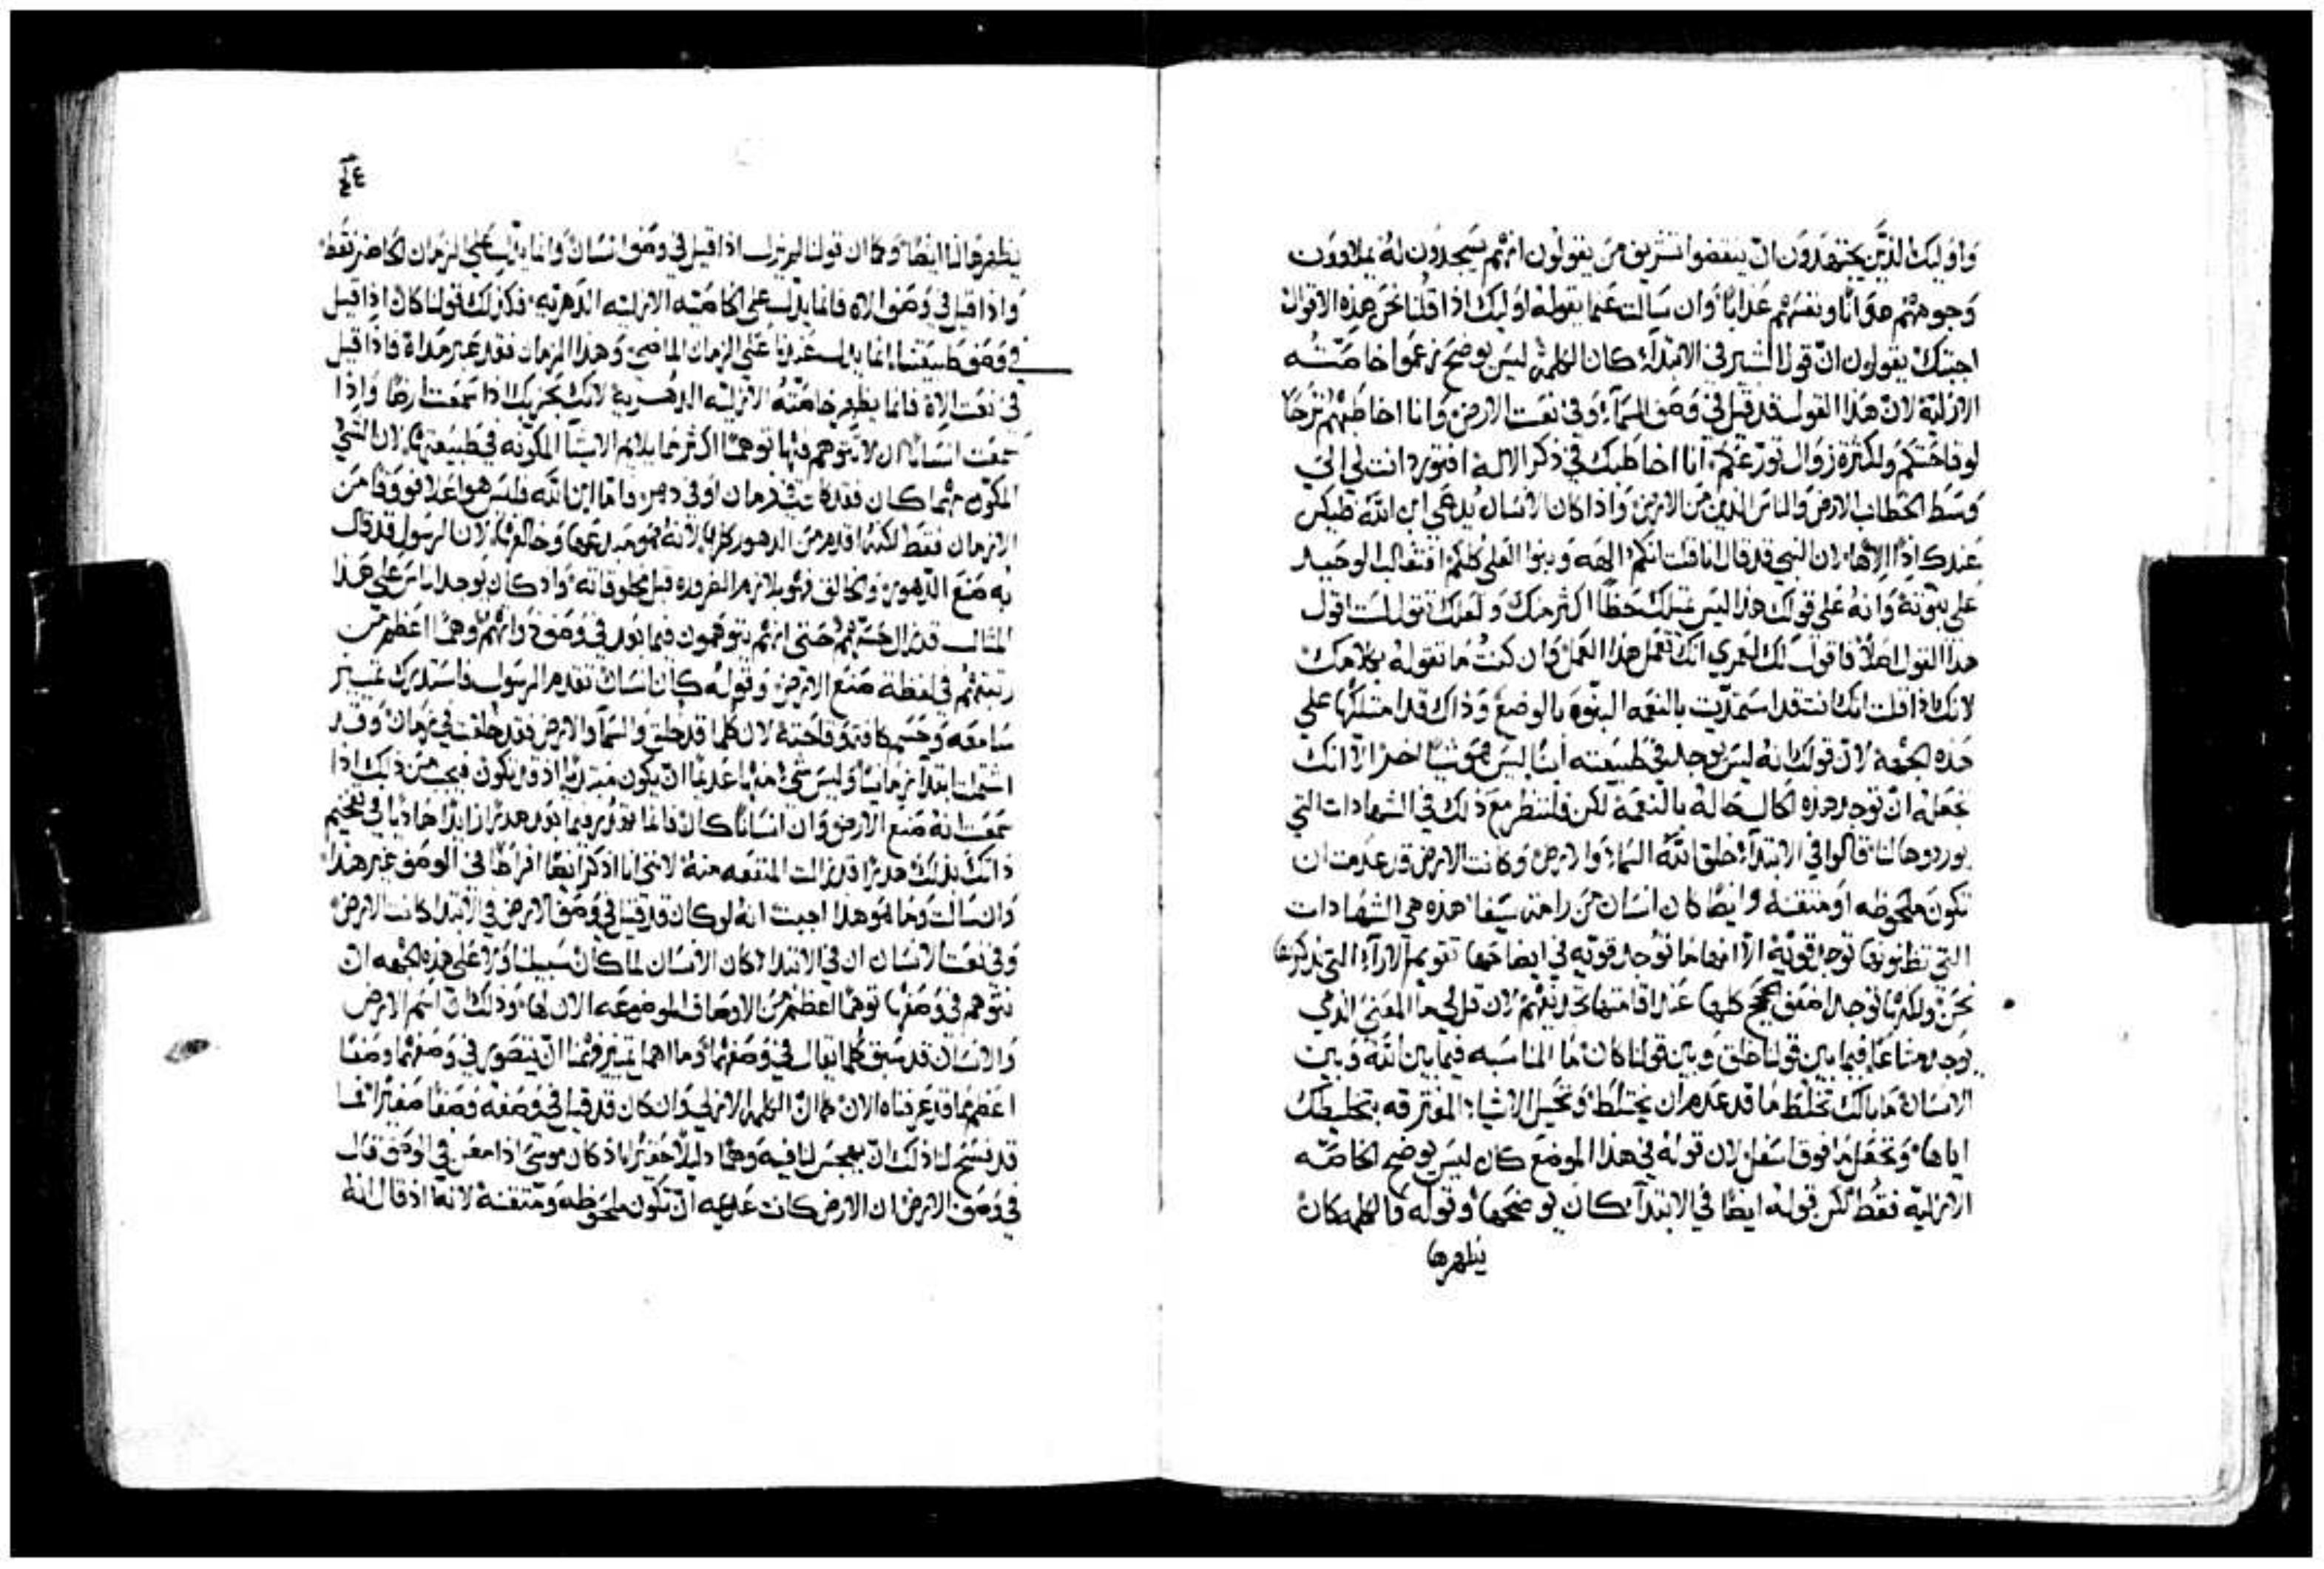 واوليك الذين يجتهدون ان ينقضوا تشريف من يقولون انهم يسجدون له يملاوون
وجوههم هوانًا ونفسهم عذابًا وان سالت عما يقوله اوليك اذا قلنا نحن هذه الاقوال
اجبتك يقولون ان قول البشير في الابتداء كان الكلمة ليس يوضح زعموا خاصته
الازلية لان هذا القول قد قيل في وصف السماء وفي نعت الارض وانا اخاطبهم
لوقاحتكم ولكثرة زوال تورعكم انا اخاطبك في ذكر الاله افتورد انت لي الي
وسط الخطاب الارض والناس الذين من الارض واذا كان الانسان يدعي ابن الله فليكن
عندك اذًا الاهًا لان النبي قد قال انا قلت انكم الهه وبنوا العلي كلكم افتغالب الوحيد
علي بنوته وانه علي قولك هذا ليس يملك حظًا اكثر منك ولعلك تقول لست اقول
هذا القول اصلًا فاقول لك لعمري انك تعمل هذا العمل وان كنت ما تقوله بكلامك
لانك اذا قلت انك انت قد استمديت بالنعمه البنوة بالوضع وذاك قد امتلكها علي
هذه الجهة لان قولك انه ليس يوجد في طبيعته ابنًا ليس هو شيًا اخر الا انك
تجعله ان توجد هذه الحال حاله بالنعمة لكن فلننظر مع ذلك في الشهادات التي
يوردوها لنا قالوا في الابتداء خلق الله السماء والارض وكانت الارض قد عدمت ان
تكون ملحوظه او متقنة وايضًا كان انسان من رامة سيفا هذه هي الشهادات
التي تظنونها توجد قوية الا انها ما توجد قويه في ايضاحها تقويم الاراء التي نذكرها
نحن ولكنها توجد اضعف الحجج كلها عند اقامتها تجديفهم لان قل لي ما المعني الذي
يوجد مشاعًا فيما بين قولنا خلق وبين قولنا كان ما المناسبه فيما بين الله وبين
الانسان ما بالك تخلط ما قد عدم ان يختلط وتحبس الاشياء المفترقه بتخليطك
اياها وتجعل ما فوق اسفل لان قوله في هذا الموضع كان ليس يوضح الخاصه
الازلية فقط لكن قوله ايضًا في الابتداء كان يوضحها وقوله والكلمه كان
يظهرها
يظهرها لنا ايضًا وكما ان قولنا لم يزل اذا قيل في وصف انسان وانما يدل علي الزمان الحاضر فقط
واذا قيل في وصف الاه فانما يدل علي الخاصيه الازليه الدهريه فكذلك قولنا كان اذا قيل
في وصف طبيعتنا انما يدل عندنا علي الزمان الماضي وهذا الزمان فقد عبر مداه فاذا قيل
في نعت الاه فانما يظهر خاصته الازليه الدهرية لانك يجزيك اذا سمعت ارضًا واذا
سمعت انسانًا ان لا تتوهم فيها توهمًا اكثر مما يلايم الاشيا المكونه في طبيعتها لان الشي
المكون مهما كان فقد كان في زمان او في دهر فاما ابن الله فليس هو اعلا فوقًا من
الازمان فقط لكنه اقدم من الدهور كلها لانه هو مبدعها وخالقها لان الرسول قد قال
به صنع الدهور والخالق فهو يلازم الضروره قبل مخلوقاته واذ كان يوجد اناس علي هذا
المثال قد زال حسهم حتي انهم يتوهمون فيما بعد في وصف ذواتهم وهمًا اعظم من
رتبتهم في لفظة صنع الارض وقوله كان انسان تقدم الرسول فاستدرك تمييز
سامعه وحسم كافة وقاحته لان كلما قد خلق والسماء والارض فقد خلقت في زمان وقد
اشتملت ابتداء زمانيًا وليس شي منها عديمًا ان يكون مبتديًا اذ قد تكون فيجب من ذلك اذا
سمعت انه صنع الارض وان انسانًا كان فانما تهذر فيما بعد هذرًا زايدًا هاذيًا في تفخيم
ذاتك بذلك هذرًا قد زالت المنفعه منه لانني انا اذكر ايضًا افراطًا في الوصف غير هذا
وان سالت وما هو هذا اجبت انه لو كان قد قيل في وصف الارض في الابتدا كانت الارض
وفي نعت الانسان ان في الابتدا كان الانسان لما كان سبيلنا ولا علي هذه الجهه ان
نتوهم في وصفها توهمًا اعظم من الاوصاف الموضوعه الان لها وذلك ان اسم الارض
والانسان قد سبق كلما يقال في وصفهما وما اهما تمييز وهمنا ان يتصور في وصفهما وصفًا
اعظم مما قد عرفناه الان كما ان الكلمه الازلي وان كان قد قيل في وصفه وصفًا صغيرًا فما
قد فسح لنا ذلك ان يهجس لنا فيه وهمًا دليلًا حقيرًا اذ كان موسي اذا امعن في الوصف قال
في وصف الارض ان الارض كانت عديمه ان تكون ملحوظه ومتقنة لانه اذ قال انه